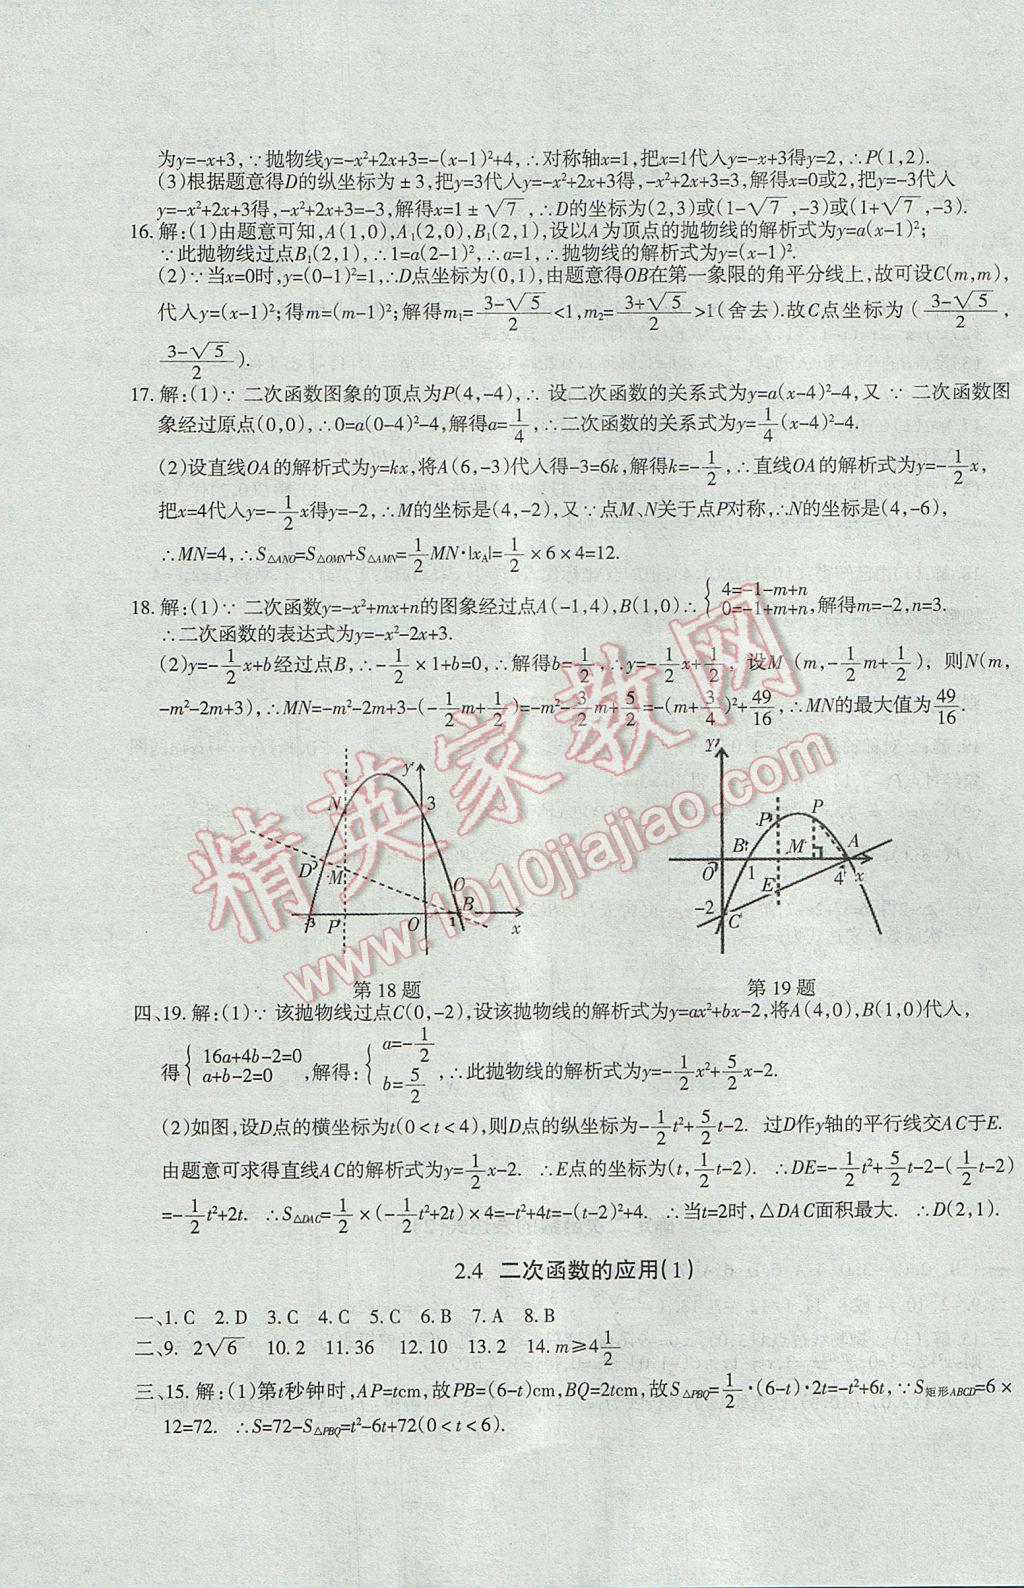 为y=-x+3,∵抛物线y=-x²+2x+3=-(x-1)²+4,∴对称轴x=1,把x=1代入y=-x+3得y=2,∴P(1,2).
(3)根据题意得D的纵坐标为±3,把y=3代入y=-x²+2x+3得,-x²+2x+3=3,解得x=0或2,把y=-3代入
y=-x²+2x+3得,-x²+2x+3=-3,解得x=1±√7,∴D的坐标为(2,3)或(1-√7,-3)或(1+√7,-3).
16.解:(1)由题意可知,A(1,0),A₁(2,0),B₁(2,1),设以A为顶点的抛物线的解析式为y=a(x-1)²;
∵此抛物线过点B₁(2,1),∴1=a(2-1)²,∴a=1,∴抛物线的解析式为y=(x-1)².
(2)∵当x=0时,y=(0-1)²=1,∴D点坐标为(0,1),由题意得OB在第一象限的角平分线上,故可设C(m,m),
代入y=(x-1)²;得m=(m-1)²;解得m₁=(3-√5)/2<1,m₂=(3+√5)/2>1(舍去).故C点坐标为((3-√5)/2,
(3-√5)/2).
17.解:(1)∵二次函数图象的顶点为P(4,-4),∴设二次函数的关系式为y=a(x-4)²-4,又∵二次函数图
象经过原点(0,0),∴0=a(0-4)²-4,解得a=1/4,∴二次函数的关系式为y=1/4(x-4)²-4.
(2)设直线OA的解析式为y=kx,将A(6,-3)代入得-3=6k,解得k=-1/2,∴直线OA的解析式为y=-1/2x,
把x=4代入y=-1/2x得y=-2,∴M的坐标是(4,-2),又∵点M、N关于点P对称,∴N的坐标是(4,-6),
∴MN=4,∴S△ANO=S△OMN+S△AMN=1/2MN·|xA|=1/2×6×4=12.
18.解:(1)∵二次函数y=-x²+mx+n的图象经过点A(-1,4),B(1,0)∴{4=-1-m+n 0=-1+m+n,解得m=-2,n=3.
∴二次函数的表达式为y=-x²-2x+3.
(2)y=-1/2x+b经过点B,∴-1/2×1+b=0,∴解得b=1/2,∴y=-1/2x+1/2.设M(m,-1/2m+1/2),则N(m,
-m²-2m+3),∴MN=-m²-2m+3-(-1/2m+1/2)=-m²-3/2m+5/2=-(m+3/4)²+49/16,∴MN的最大值为49/16.
y N 3 D M O B -3 P O 1 x
第18题
Y P P B M A O 1 4 x E -2 C
第19题
四、19.解:(1)∵该抛物线过点C(0,-2),设该抛物线的解析式为y=ax²+bx-2,将A(4,0),B(1,0)代入,
得{16a+4b-2=0 a+b-2=0,解得:{a=-1/2 b=5/2,∴此抛物线的解析式为y=-1/2x²+5/2x-2.
(2)如图,设D点的横坐标为t(0<t<4),则D点的纵坐标为-1/2t²+5/2t-2. 过D作y轴的平行线交AC于E.
由题意可求得直线AC的解析式为y=1/2x-2. ∴E点的坐标为(t,1/2t-2). ∴DE=-1/2t²+5/2t-2-(1/2t-2)
=-1/2t²+2t. ∴S△DAC=1/2×(-1/2t²+2t)×4=-t²+4t=-(t-2)²+4. ∴当t=2时,△DAC面积最大. ∴D(2,1).
2.4 二次函数的应用(1)
一、1.C 2.D 3.C 4.C 5.C 6.B 7.A 8.B
二、9. 2√6 10.2 11.36 12.10 13.2 14.m≥4 1/2
三、15.解:(1)第t秒钟时,AP=tcm,故PB=(6-t)cm,BQ=2tcm,故S△PBQ=1/2·(6-t)·2t=-t²+6t,∵S矩形ABCD=6×
12=72. ∴S=72-S△PBQ=t²-6t+72(0<t<6).
精英家教网
www.1010jiajiao.com